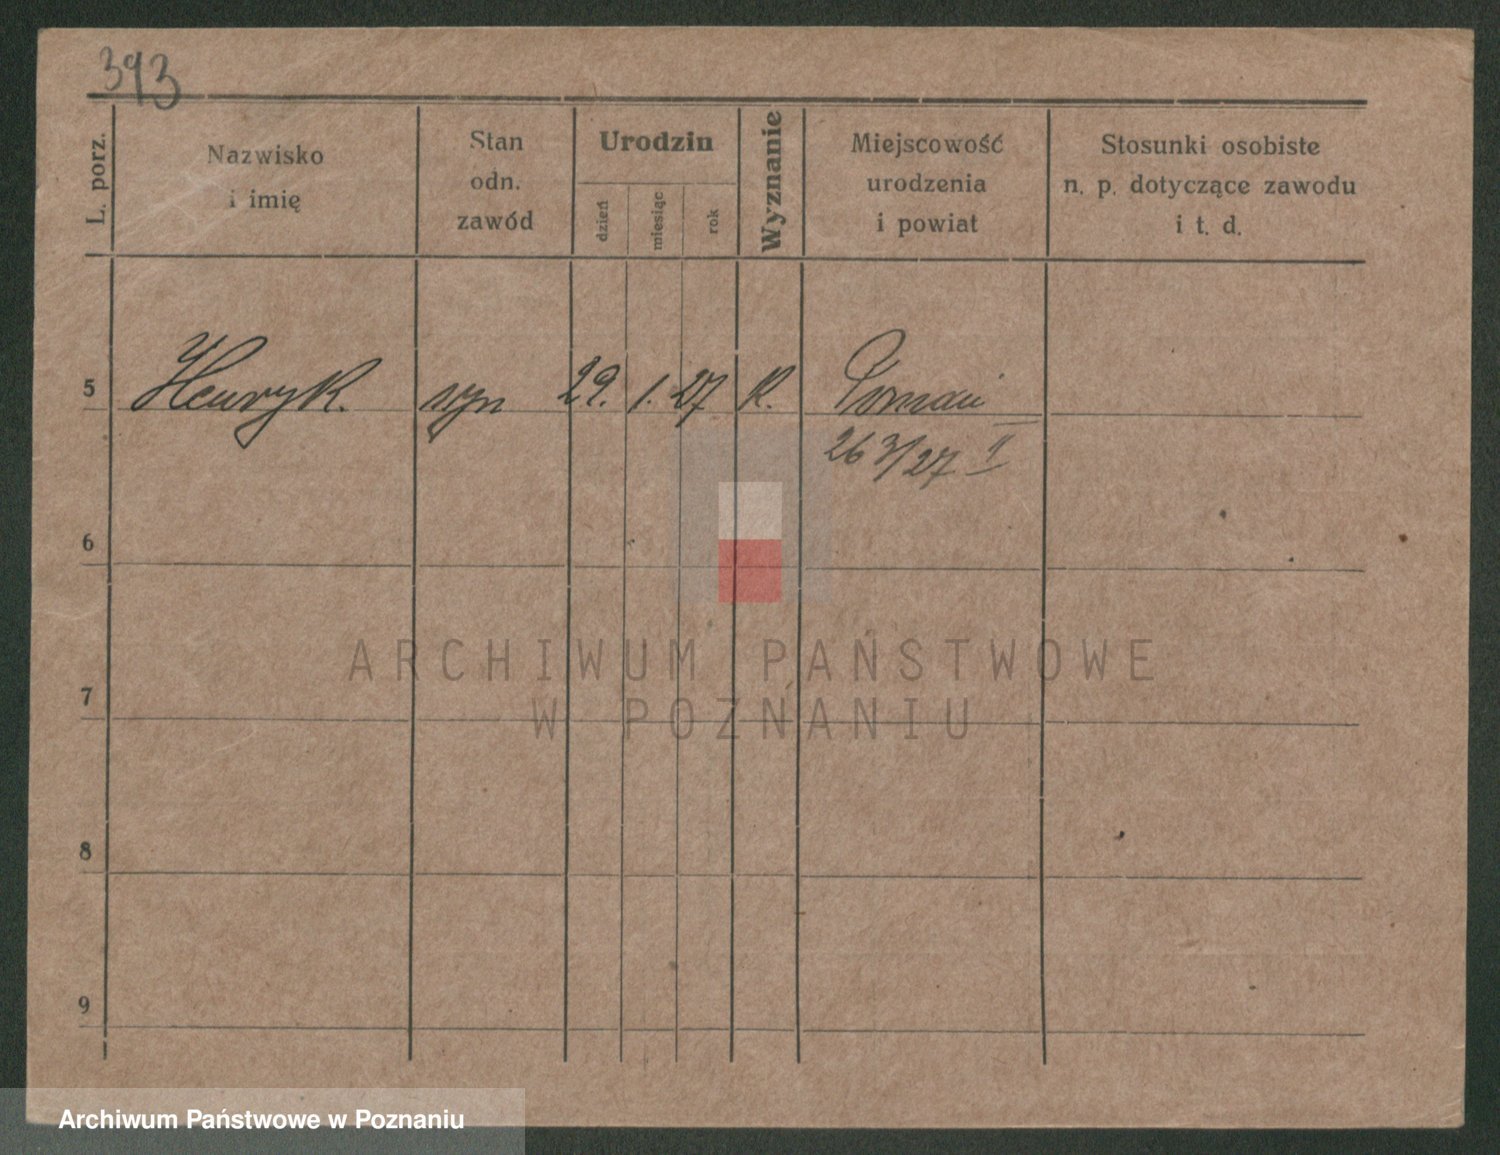 393
L. porz.
Nazwisko
i imię
Stan
odn.
zawód
Urodzin
dzień
miesiąc
rok
Wyznanie
Miejscowość
urodzenia
i powiat
Stosunki osobiste
n. p. dotyczące zawodu
i t. d.
5 Henryk. syn 29. 1. 27 k. Poznań
263/27 II
6
ARCHIWUM PAŃSTWOWE
W POZNANIU
7
8
9
Archiwum Państwowe w Poznaniu